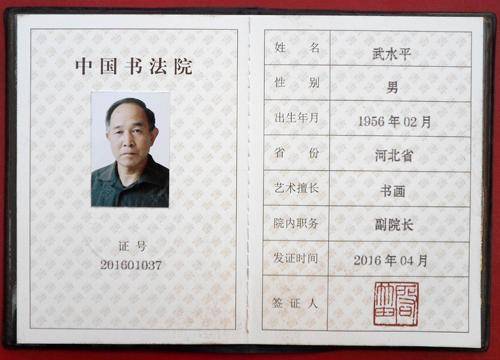 中国书法院
证号
201601037
姓名 武水平
性别 男
出生年月 1956年02月
省份 河北省
艺术擅长 书画
院内职务 副院长
发证时间 2016年04月
签证人